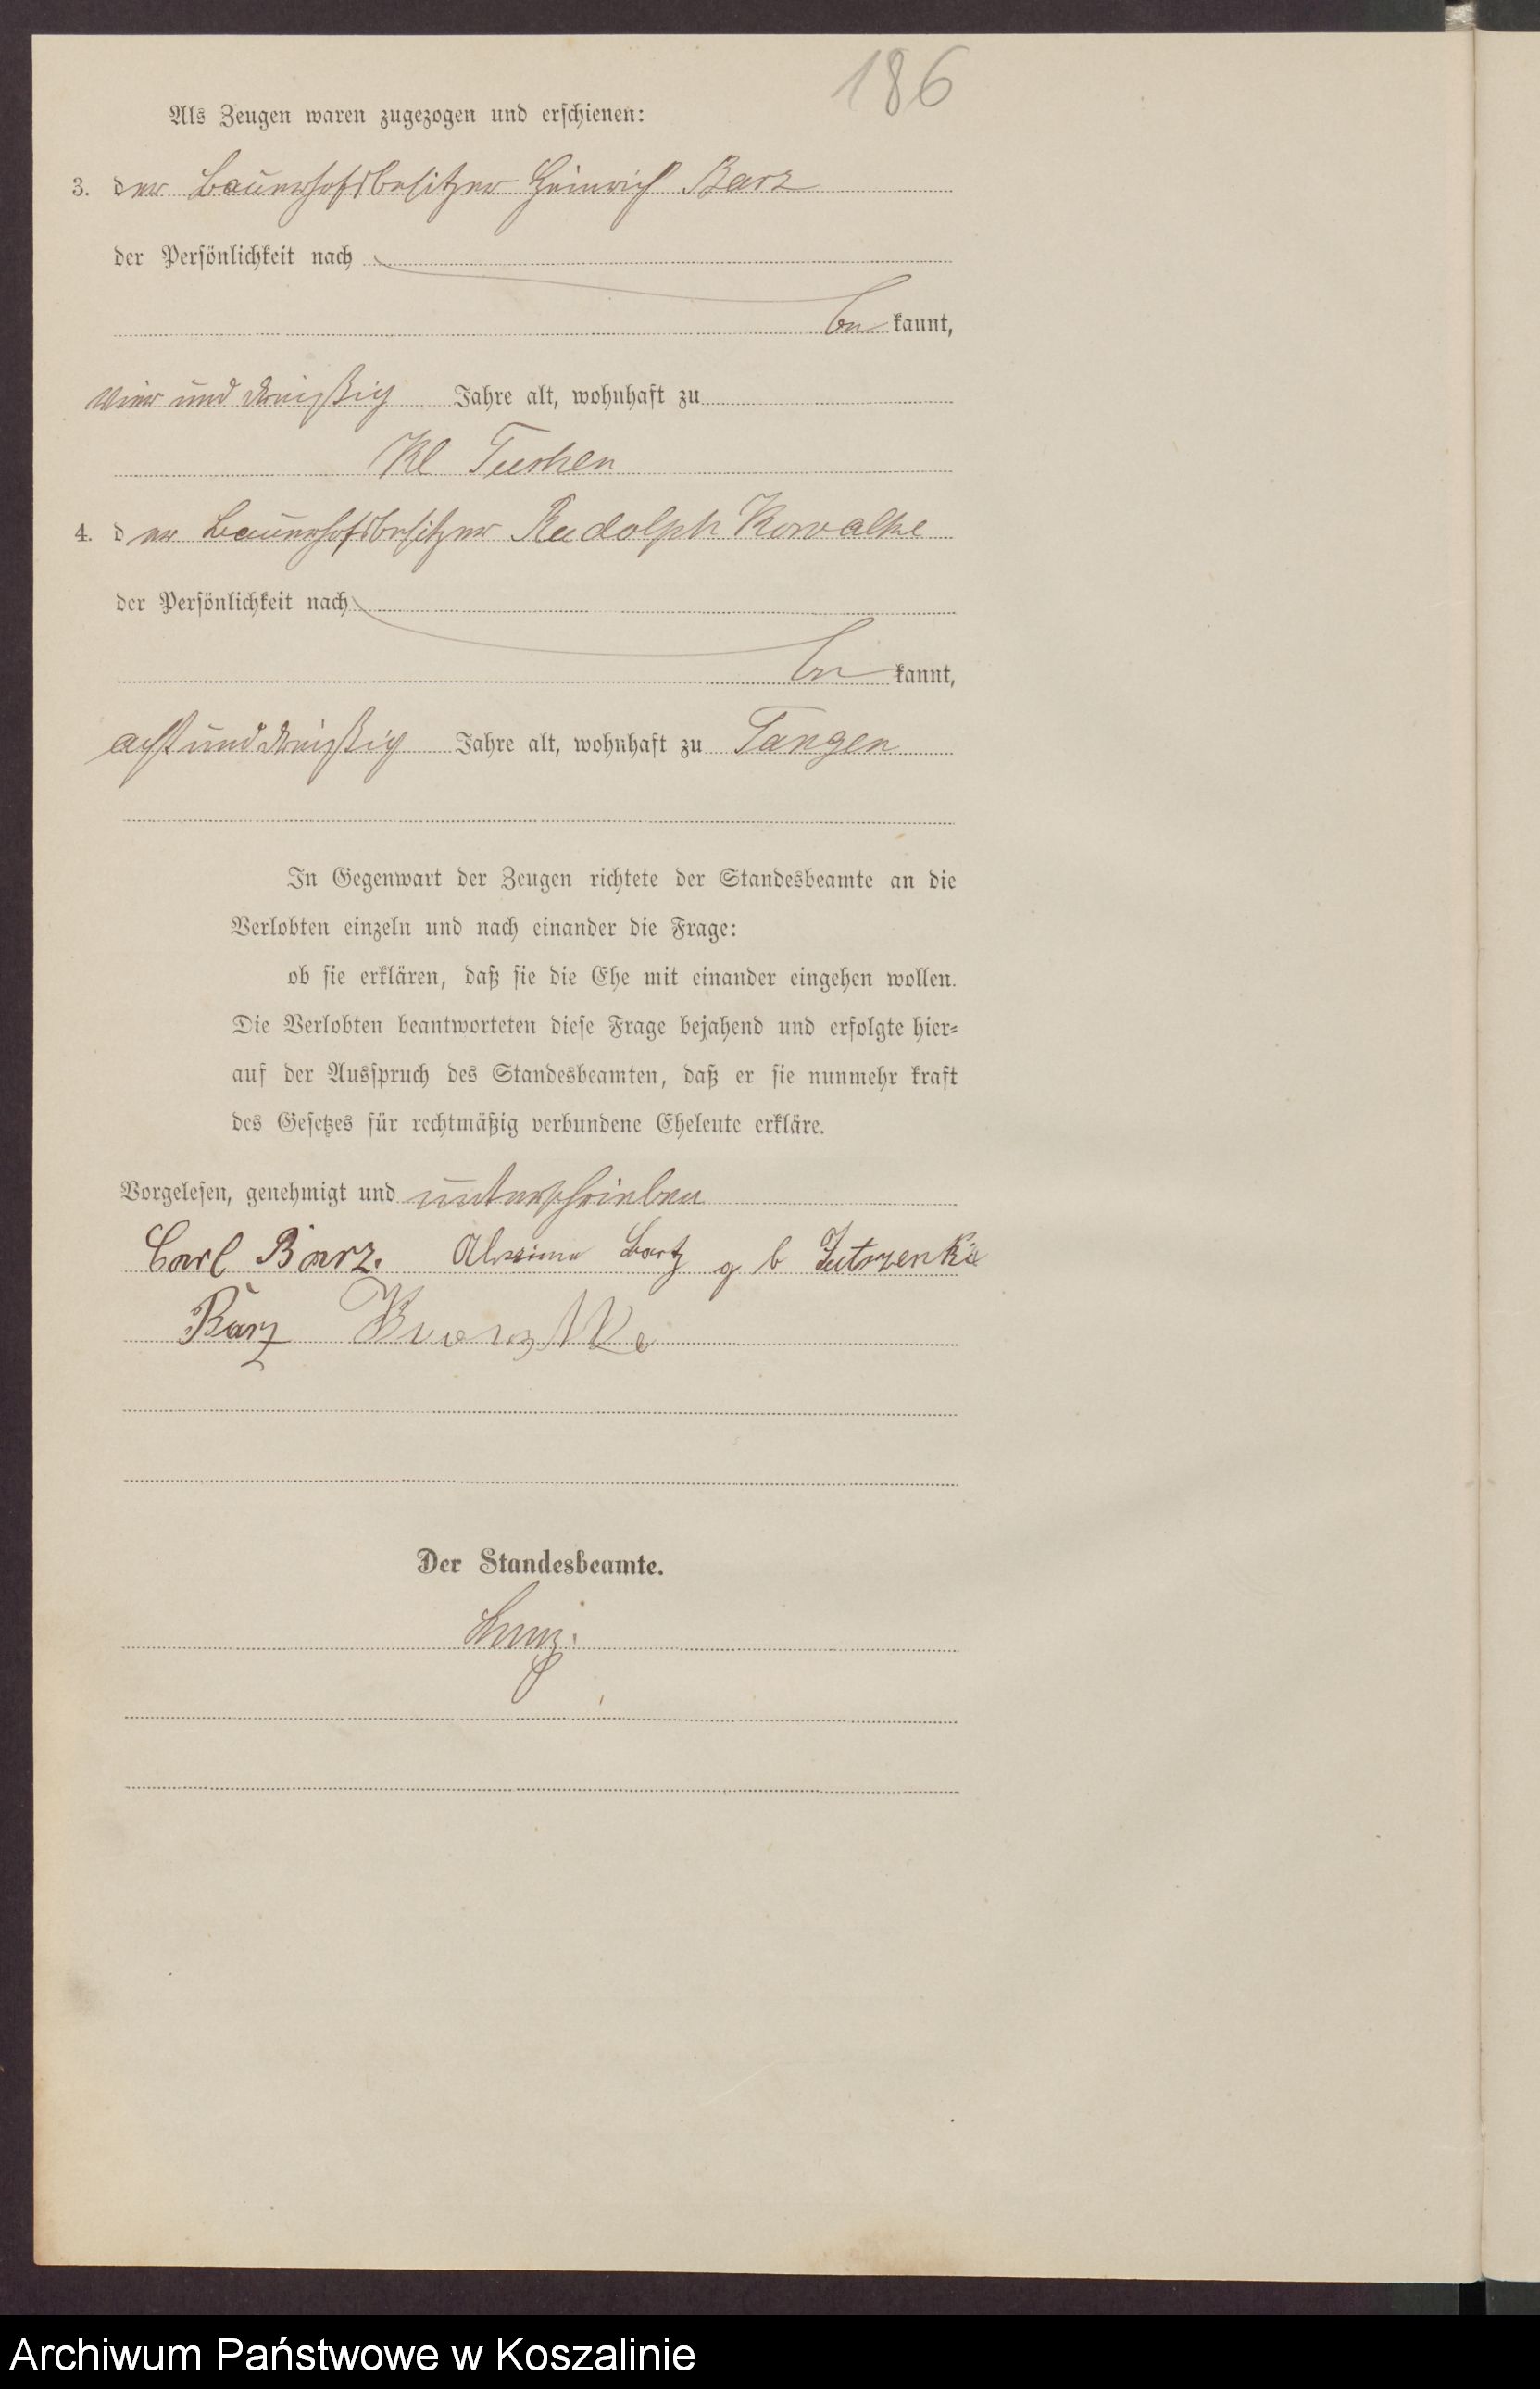 186
Als Zeugen waren zugezogen und erschienen:
3. der Bauerhofsbesitzer Heinrich Barz
der Persönlichkeit nach
be kannt,
vier und dreißig Jahre alt, wohnhaft zu
Kl Tuchen
4. der Bauerhofsbesitzer Rudolph Kowalke
der Persönlichkeit nach
be kannt,
acht und dreißig Jahre alt, wohnhaft zu Tangen
In Gegenwart der Zeugen richtete der Standesbeamte an die
Verlobten einzeln und nach einander die Frage:
ob sie erklären, daß sie die Ehe mit einander eingehen wollen.
Die Verlobten beantworteten diese Frage bejahend und erfolgte hier-
auf der Ausspruch des Standesbeamten, daß er sie nunmehr kraft
des Gesetzes für rechtmäßig verbundene Eheleute erkläre.
Vorgelesen, genehmigt und unterschrieben
Carl Barz. Bartz g b Jutrzenka
Barz
Der Standesbeamte.
Archiwum Państwowe w Koszalinie